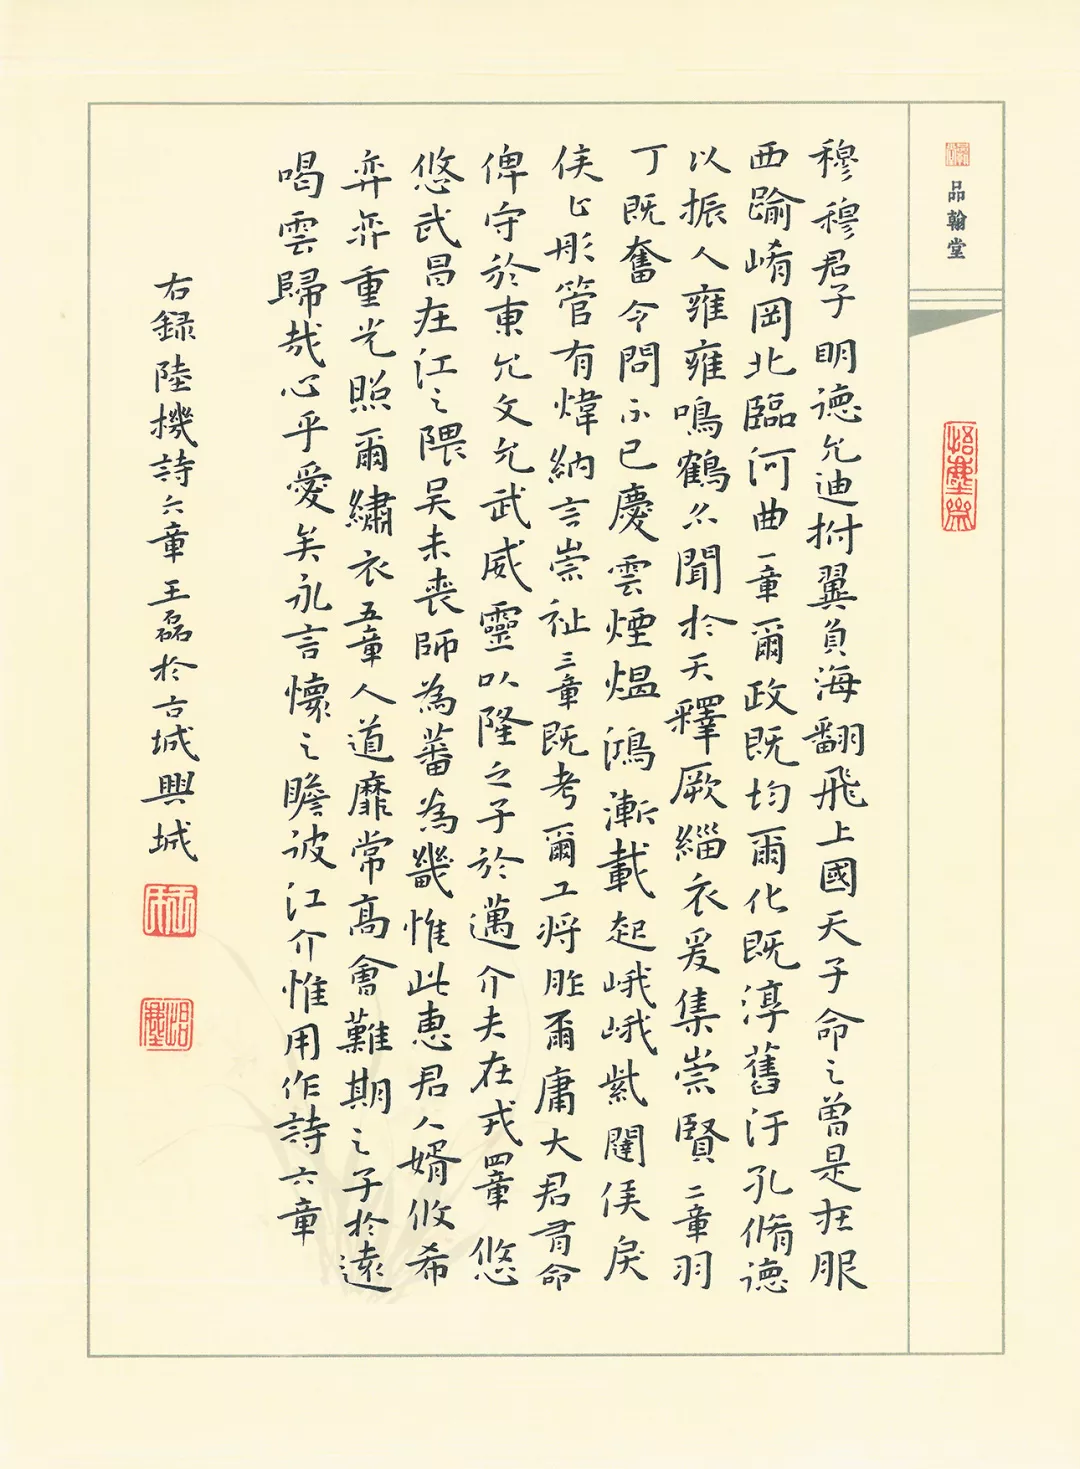 品翰堂
穆穆君子明德允迪拊翼負海翻飛上國天子命之曾是在服
西踰崤岡北臨河曲一章爾政既均爾化既淳舊汙孔脩德
以振人雍雍鳴鶴亦聞於天釋厥緇衣爰集崇賢二章羽
丁既奮令問不已慶雲煙熅鴻漸載起峨峨紫闥侯戾
侯止彤管有煒納言崇祉三章既考爾工将胙爾庸大君有命
俾守於東允文允武威靈以隆之子於邁介夫在戎四章悠
悠武昌在江之隈吴未喪師為蕃為畿惟此惠君人婿攸希
弈弈重光照爾繡衣五章人道靡常高會難期之子於遠
喝雲歸哉心乎愛矣永言懷之瞻彼江介惟用作詩六章
右録陸機詩六章王磊於古城興城